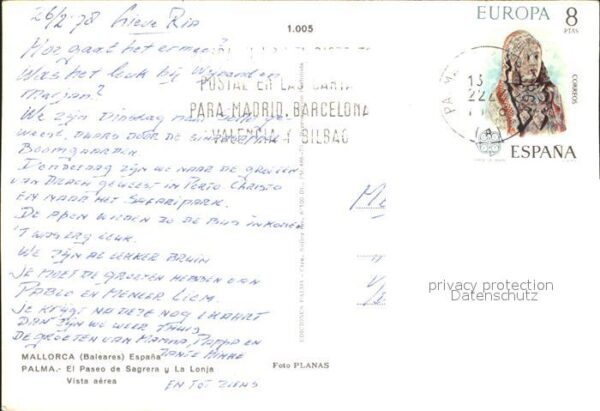 26/2 '78 Lieve Ria
Hoe gaat het ermee?
Was het leuk bij Wijnanden
Marjan?
We zijn Dinsdag naar
geweest, dwars door de
Boomgaarden
Donderdag zijn we naar de grotten
van Drach geweest in Porto Christo
en naar het Safaripark.
De apen wilden zo de bus inkomen
't was erg leuk.
We zijn al lekker bruin
Je moet de groeten hebben van
Pablo en Meneer Liem.
Je krijgt na deze nog 1 kaart
Dan zijn we weer thuis
De groeten van Mamma, Pappa en
Tante Minke
en tot ziens
1.005
POSTAL EN LAS CARTAS
PARA MADRID, BARCELONA
VALENCIA Y BILBAO
EUROPA 8
PTAS
CORREOS
ESPAÑA
PALMA
13
22
privacy protection
Datenschutz
EDICIONES PALMA
MALLORCA (Baleares) España
PALMA.- El Paseo de Sagrera y La Lonja
Vista aérea
Foto PLANAS